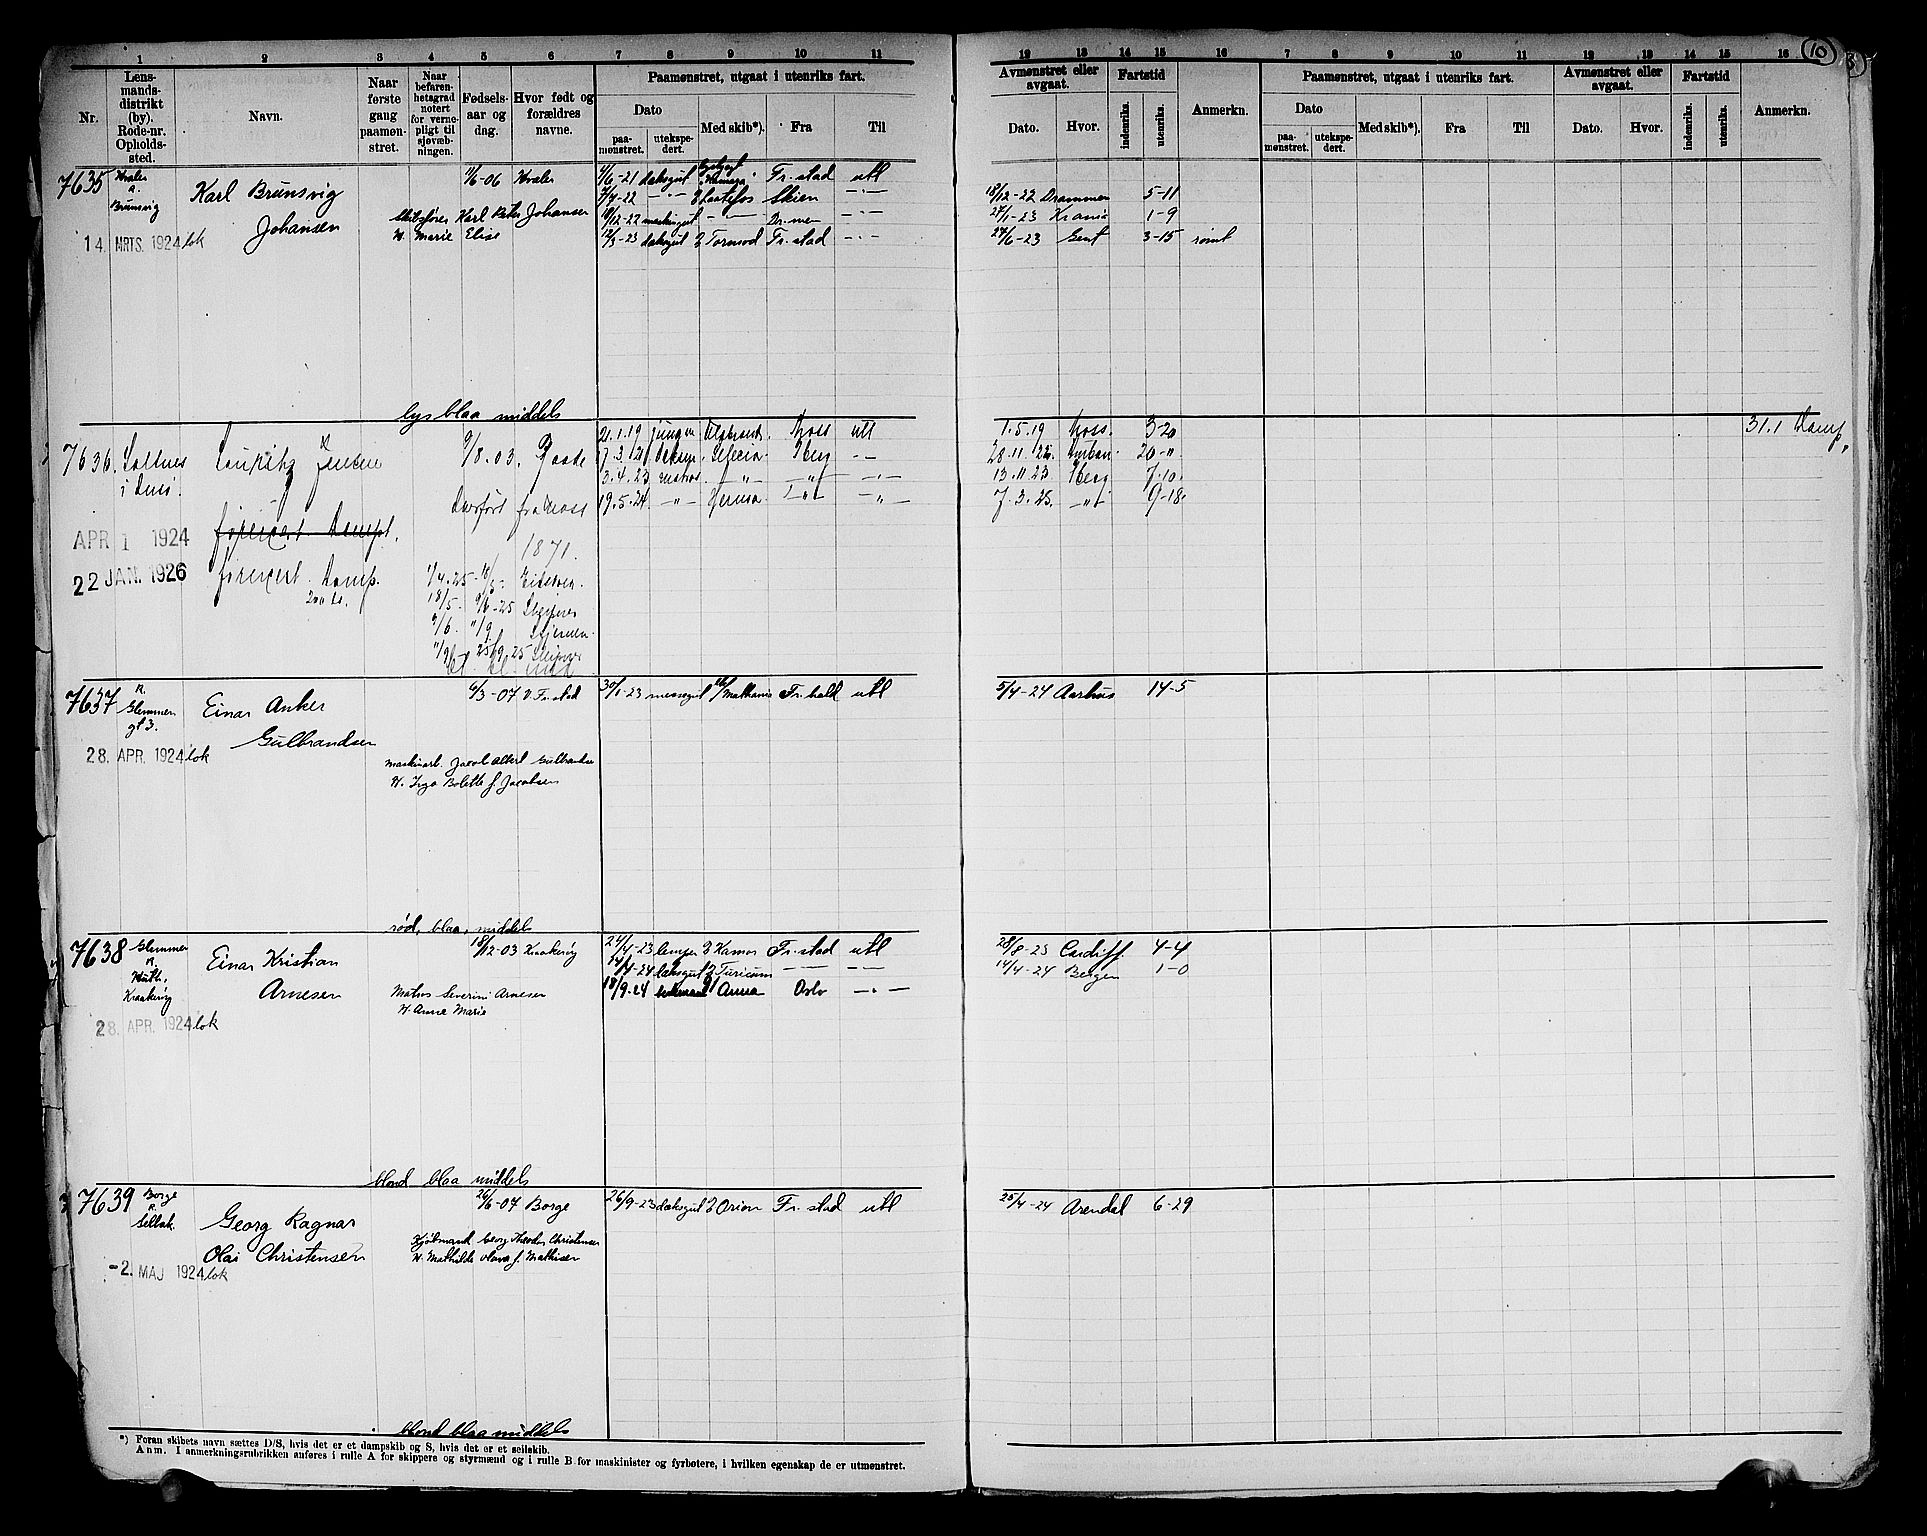 1 2 3 4 5 6 7 8 9 10 11
Nr.
Lens-
mands-
distrikt
(by).
Rode-nr.
Opholds-
sted.
Navn.
Naar
første
gang
paamøn-
stret.
Naar
befaren-
hetsgrad
notert
for verne-
pligt til
sjøvæb-
ningen.
Fødsels-
aar og
dag.
Hvor født og
forældres
navne.
Paamønstret, utgaat i utenriks fart.
Dato
paa-
mønstret.
utekspe-
dert.
Med skib*).
Fra
Til
7635 Hvaler
Brunsvig
Karl Brunsvig
Johansen
14. MRTS. 1924 lok
1/6-06 Hvaler
Karl Peter Johansen
H. Marie Elise
4/6-21 dæksgut Fr.stad utl
7/4-22 Skien
18/12-22 maskingut Dr.men
12/3-23 dæksgut Tormod Fr.stad
lys blaa middels
7636. Saltnes
Lauritz Jensen
APR 1 1924
22 JAN. 1926
9/8.03. Raade
Overført fra Moss
1871.
1/4.25
18/5. 9/6-25
9/6. 11/9
11/9 25/9.25
21.1.19 jungm Moss utl
17.3.21
3.4.23 matros
19.5.24
7637 R.
Glemmen
gt 3.
Einar Anker
Gulbrandsen
28. APR. 1924 lok
6/3-07 V. Fr.stad
Maskinarb. Jacob Albert Gulbrandsen
H. Inga Bolette f. Jacobsen
30/1-23 messegut Fr.hald utl
rød, blaa, middels
7638 Glemmen
Kraakerøy
Einar Kristian
Arnesen
28. APR. 1924 lok
18/12-03 Kraakerøy
Matros Severin Arnesen
H. Anna Marie
24/4-23 lemper Fr.stad utl
14/4-24 dæksgut Turicum
18/9-24 Anna Oslo
blond blaa middels
7639 Borge
R.
Sellæk.
Georg Ragnar
Olai Christensen
-2. MAJ 1924 lok
26/6-07 Borge
Kjøbmand Georg Theodor Christensen
H. Mathilde Olava f. Mathisen
26/9-23 dæksgut Orion Fr.stad utl
blond blaa middels
*) Foran skibets navn sættes D/S, hvis det er et dampskib og S, hvis det er et seilskib.
Anm. I anmerkningsrubrikken anføres i rulle A for skippere og styrmænd og i rulle B for maskinister og fyrbøtere, i hvilken egenskap de er utmønstret.
12 13 14 15 16 7 8 9 10 11 12 13 14 15 16
10
Avmønstret eller
avgaat.
Dato. Hvor.
Fartstid
indenriks.
utenriks.
Anmerkn.
Paamønstret, utgaat i utenriks fart.
Dato
paa-
mønstret.
utekspe-
dert.
Med skib*).
Fra
Til
Avmønstret eller
avgaat.
Dato. Hvor.
Fartstid
indenriks.
utenriks.
Anmerkn.
18/12-22 Drammen 5-11
27/1-23 1-9
27/6-23 Gent 3-15 rømt
1.5.19 Moss. 3-20
31.1 Damp.
13.11.23. 7.10.
7.3.25. 9-18.
5/4-24 Aarhus 14-5
28/8-23 Cardiff 4-4
14/4-24 Bergen 1-0
25/4-24 Arendal 6-29